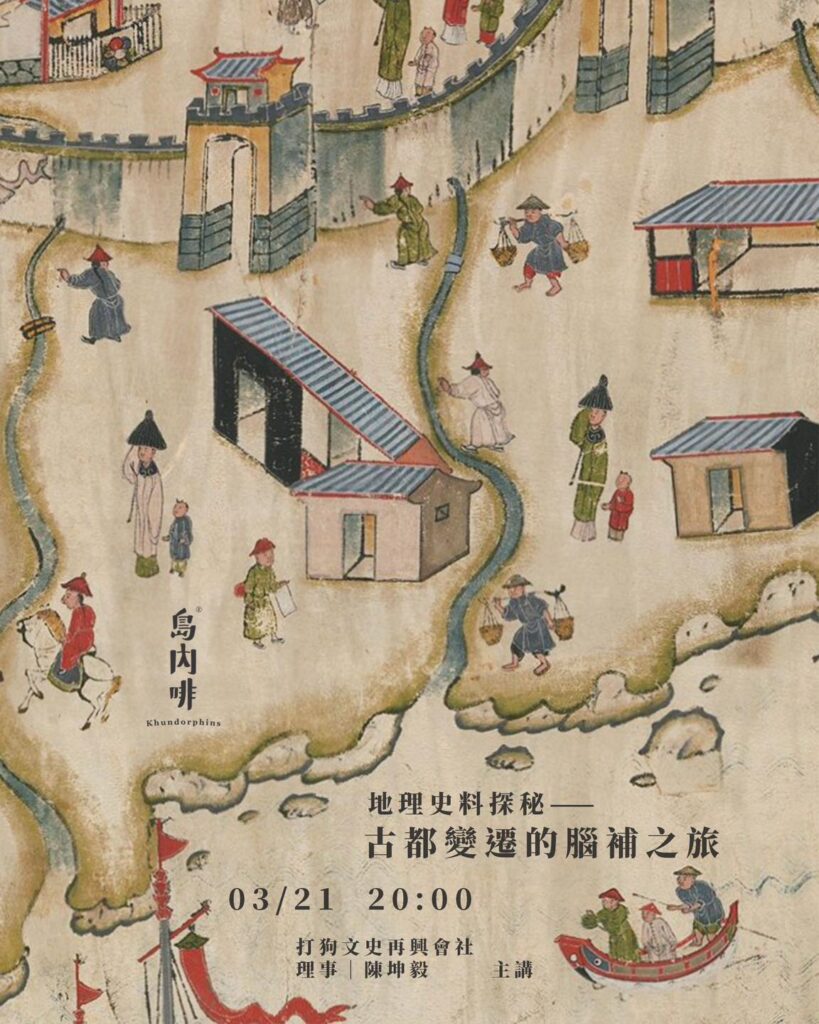 島内啡
Khundorphins
地理史料探秘——
古都變遷的腦補之旅
03/21 20:00
打狗文史再興會社
理事｜陳坤毅 主講